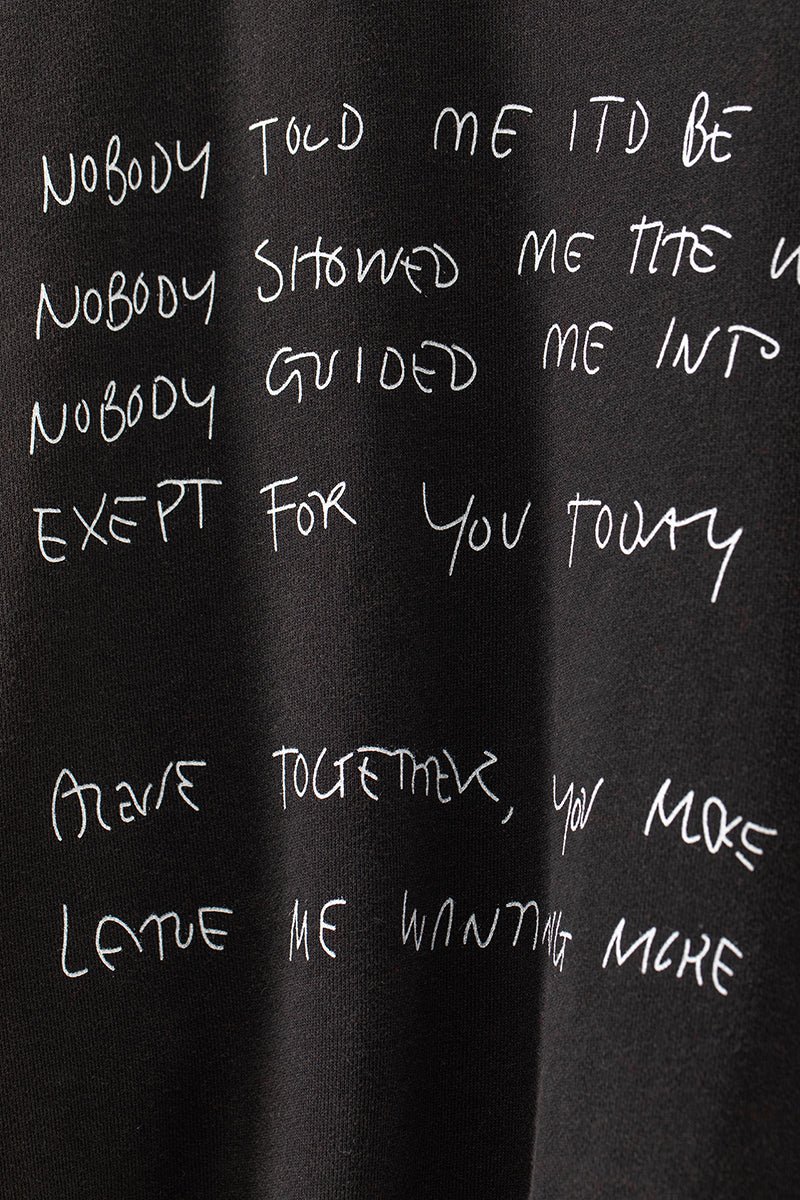 NOBODY TOLD ME IT'D BE
NOBODY SHOWED ME THE W
NOBODY GUIDED ME INTO
EXEPT FOR YOU TODAY
TOGETHER, YOU MAKE
LEAVE ME WANTING MORE